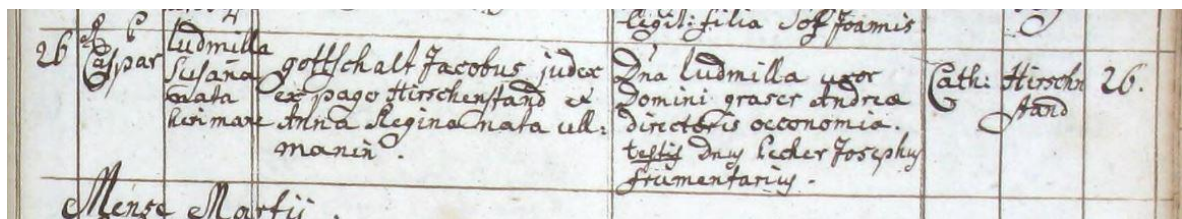 legit: filia Joannis
26 Caspar Ludmilla
Susana
nata
heri mane
gottschalt Jacobus judex
ex pago Hirschenstand et
Anna Regina nata ull:
manin.
Dna Ludmilla uxor
Domini graser Andrea
directoris oeconomia.
testis dnus Josephus
frumentarius.
Cath: Hirschn
stand
26.
Mense Martij.